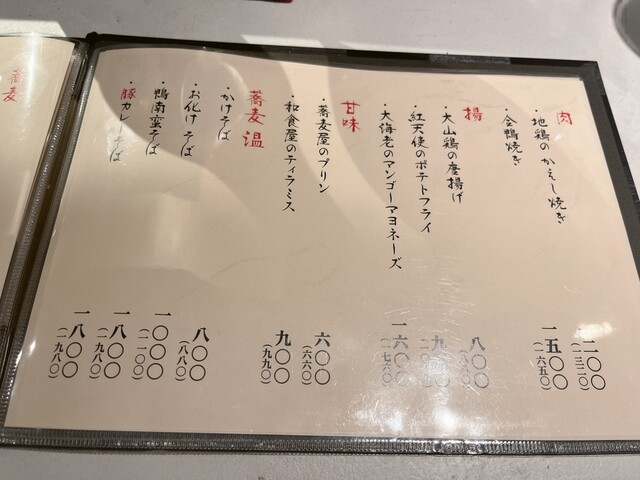 肉
・地鶏のかえし焼き 一二〇〇
(一三二〇)
・合鴨焼き 一五〇〇
(一六五〇)
揚
・大山鶏の唐揚げ 八〇〇
(八八〇)
・紅天使のポテトフライ
・大海老のマンゴーマヨネーズ 一六〇〇
(一七六〇)
甘味
・蕎麦屋のプリン 六〇〇
(六六〇)
・和食屋のティラミス 九〇〇
(九九〇)
蕎麦 温
・かけそば 八〇〇
(八八〇)
・お化けそば 一〇〇〇
(一一〇〇)
・鴨南蛮そば 一八〇〇
(一九八〇)
・豚カレーそば 一八〇〇
(一九八〇)
蕎麦